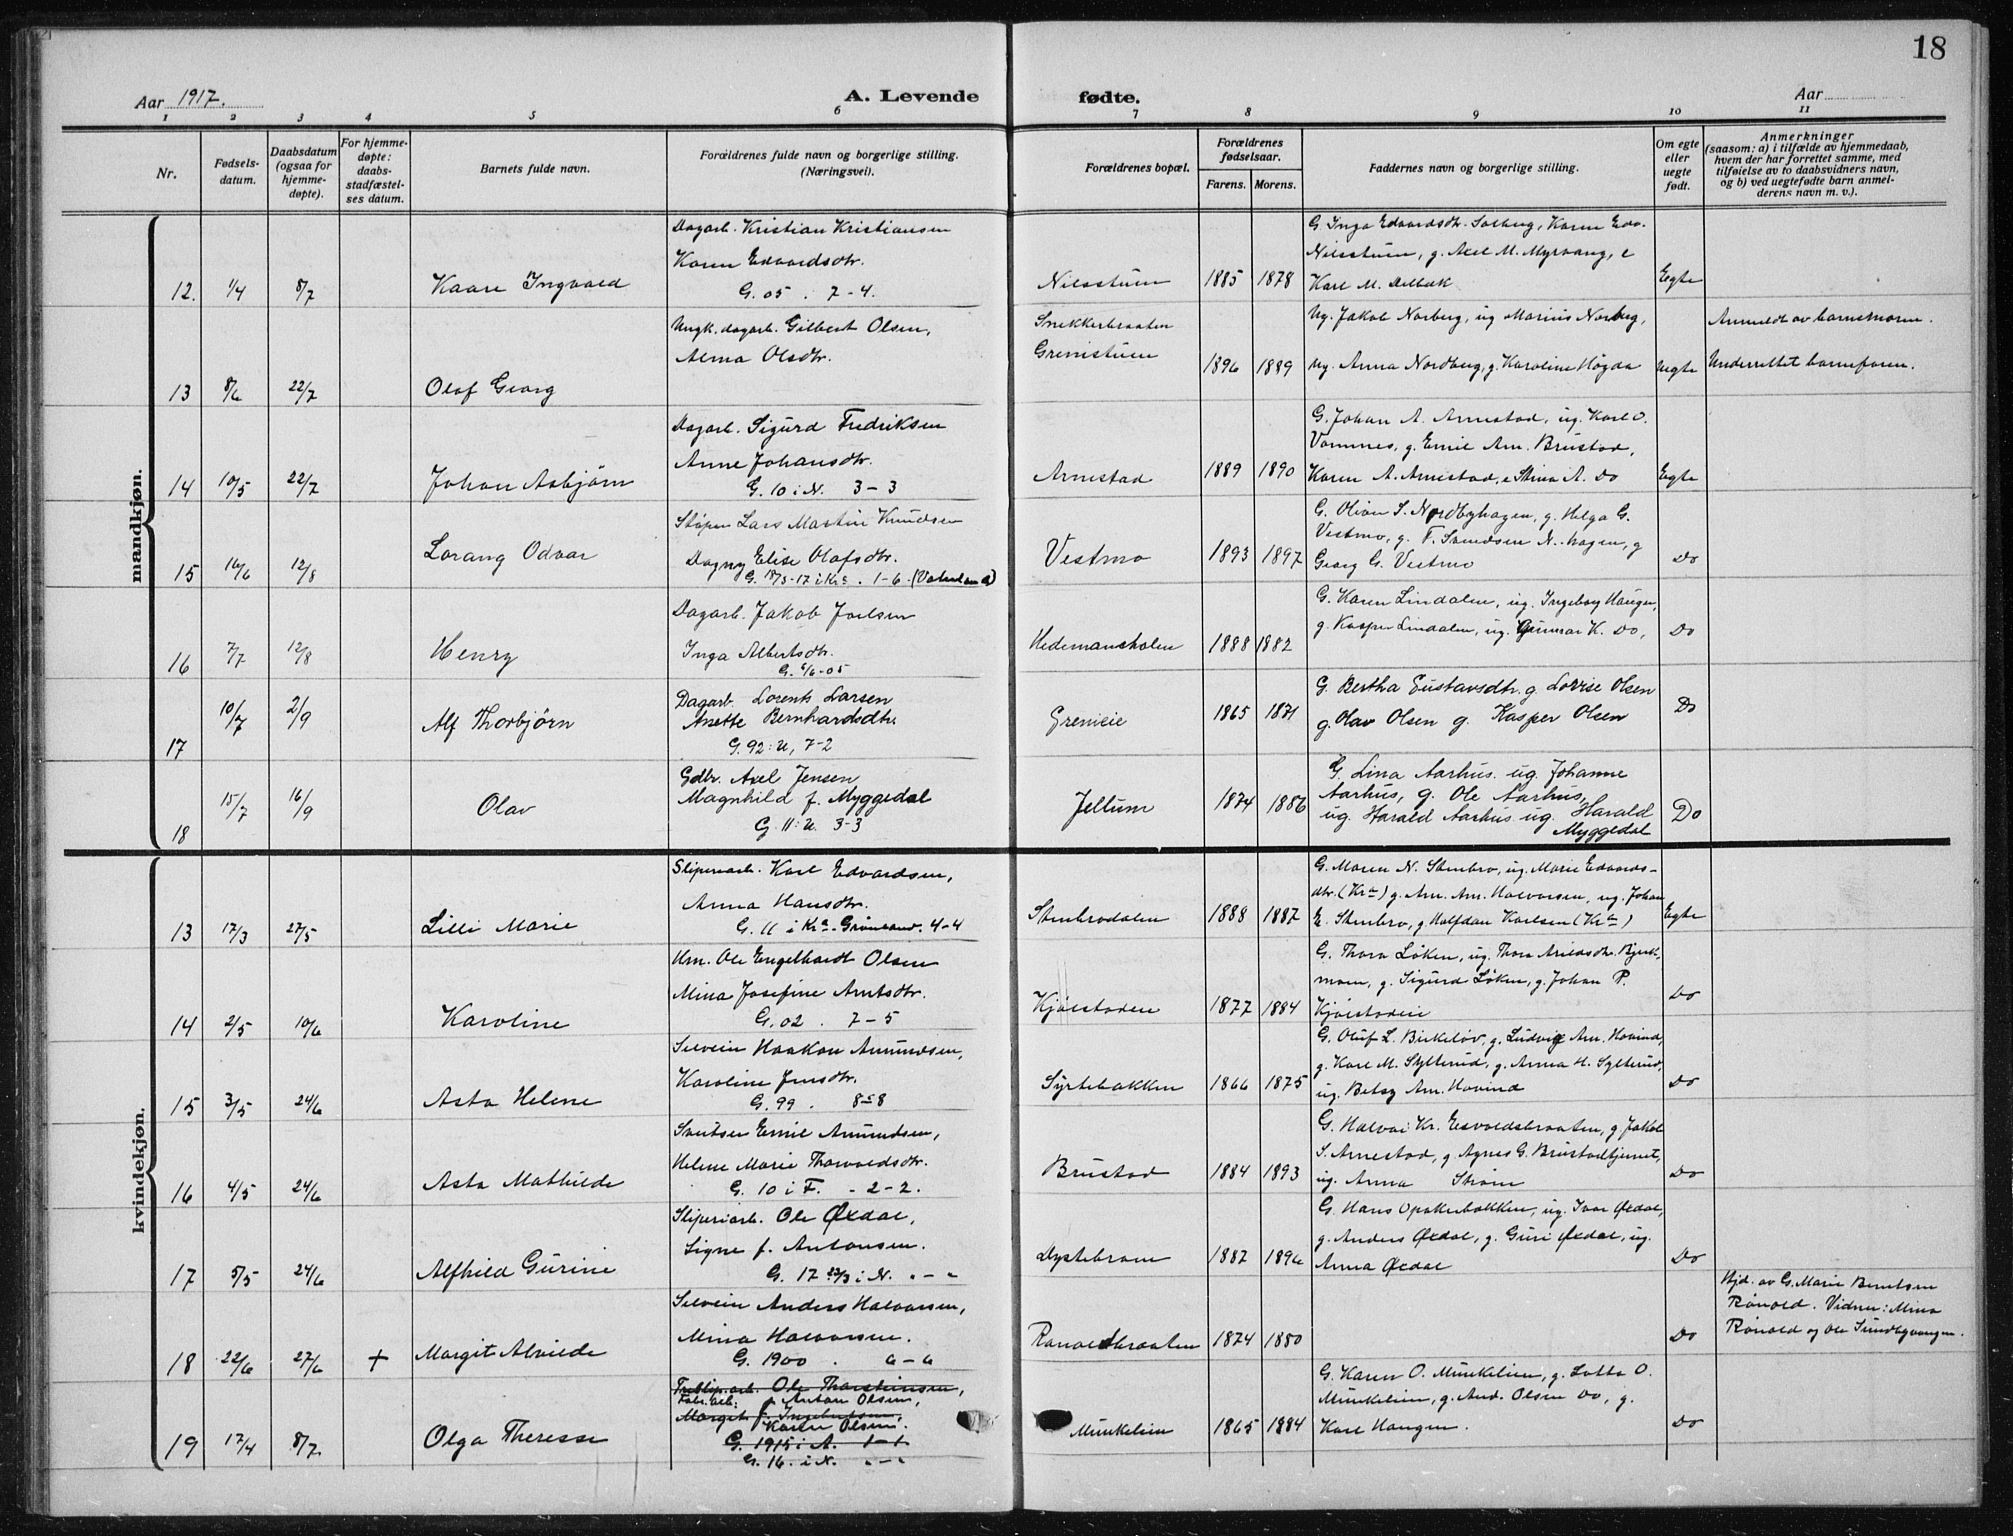 18
Aar 1917.
A. Levende
fødte.
Aar
1 2 3 4 5 6 7 8 9 10 11
Nr.
Fødsels-
datum.
Daabsdatum
(ogsaa for
hjemme-
døpte).
For hjemme-
døpte:
daabs-
stadfæstel-
ses datum.
Barnets fulde navn.
Forældrenes fulde navn og borgerlige stilling.
(Næringsvei).
Forældrenes bopæl.
Forældrenes
fødselsaar.
Farens. Morens.
Faddernes navn og borgerlige stilling.
Om egte
eller
uegte
født.
Anmerkninger
(saasom: a) i tilfælde av hjemmedaab,
hvem der har forrettet samme, med
tilføielse av to daabsvidners navn,
og b) ved uegtefødte barn anmel-
derens navn m. v.).
mandkjøn.
Dagarb. Kristian Kristiansen
Karen Edvardsdtr.
G. 05 . 7-4.
12. 1/4 8/7 Kaare Ingvald
Nilsstuen 1885 1878
G. Inga Edvardsdtr. Solberg, Karen Edv.
Nilsstuen, g. Axel M. Myrvang, e
Karl M. Delbæk
Egte
Ungk. dagarb. Gilbert Olsen,
Alma Olsdtr.
13 8/6 22/7 Olaf Georg
Snekkerbraaten
Grenistuen 1896 1889
Ug. Jakob Norberg, ug Marius Norberg,
ug. Anna Nordberg, g. Karoline Høgda
Uegte
Anmeldt av barnemoren.
Underrettet barnefaren.
Dagarb. Sigurd Fredriksen
Anne Johansdtr.
G. 10 i N. 3-3
14 10/5 22/7 Johan Asbjørn
Arnestad 1889 1890
G. Johan A. Arnestad, ug. Karl O.
Vammes, g. Emil Am. Brustad,
Karen A. Arnestad, e Stina A. Do
Egte
Støper Lars Martin Knudsen
Dagny Elise Olafsdtr.
G. 18/3-17 i Kra. 1-6. (Vaalerenga)
15 16/6 12/8 Lorang Odvar
Vestmo 1893 1897
G. Oliver S. Nordbyhagen, g. Helga G.
Vestmo, g. F. Svendsen N. hagen, g
Georg G. Vestmo
Do
Dagarb. Jakob Joelsen
Inga Albertsdtr.
G. 6/6-05
16 7/7 12/8 Henry
Hedemanskolen 1888 1882
G. Karen Lindalen, ug. Ingeborg Haugen,
g. Kasper Lindalen, ug. Gunnar K. Do,
Do
Dagarb. Lorents Larsen
Anette Bernhardsdtr.
G. 92: U, 7-2
17 10/7 2/9 Alf Thorbjørn
Grenieie 1865 1871
G. Bertha Gustavsdtr. g. Lovise Olsen
g. Olav Olsen g. Kasper Olsen
Do
Gdbr. Axel Jensen
Magnhild f. Myggedal
G. 11: U. 3-3
18 15/7 16/9 Olav
Jellum 1874 1886
G. Lina Aarhus. ug. Johanne
Aarhus, g. Ole Aarhus,
ug. Harald Aarhus ug. Harald
Myggedal
Do
kvindekjøn.
Sliperiarb. Karl Edvardsen,
Anna Hansdtr.
G. 11 i Kra. Grønland. 4-4
13 17/3 27/5 Lilli Marie
Stenbrodalen 1888 1887
G. Maren N. Stenbro, ug. Marie Edvards-
dtr. (Kra) g. Am. Am. Halvorsen, ug. Johan
E. Stenbro, g. Halfdan Karlsen (Kra)
Egte
Hm. Ole Engelhardt Olsen
Mina Josefine Arntsdtr.
G. 02 . 7-5
14 2/5 10/6 Karoline
Kjølstaden 1877 1884
G. Thora Løken, ug. Thora Arildsdtr. Bjerk-
moen, g. Sigurd Løken, g. Johan P.
Kjølstadeie
Do
Selveier Haakon Amundsen,
Karoline Jensdtr.
G. 99 . 8-8
15 3/5 24/6 Asta Helene
Syrtebakken 1866 1875
G. Oluf L. Birkeløv, g. Ludvig Am. Hovind,
g. Karl M. Sylterud, g. Anna H. Sylterud,
ug. Betsy Am. Hovind
Do
Sveitser Emil Amundsen,
Helene Marie Thorvaldsdtr.
G. 10 i F. - 2-2.
16 4/5 24/6 Asta Mathilde
Brustad 1884 1893
G. Halvor Kr. Eisvoldsbraaten, g. Jakob
S. Arnestad, g. Agnes G. Brustadtjernet,
ug. Anna Strøm
Do
Sliperiarb. Ole Øxdal,
Signe f. Antonsen.
G. 17 23/3 i N. " - "
17 5/5 24/6 Alfhild Gurine
Dystebroen 1887 1896
G. Hans Opakerbakken, ug. Ivar Øxdal,
g. Anders Øxdal, g. Guri Øxdal, ug.
Anna Øxdal
Do
Selveier Anders Halvorsen,
Mina Halvorsen.
G. 1900 . 6-6
18 22/6 27/6 + Margit Alvilde
Ranoldbraaten 1874 1880
Do
Hjd. av G. Marie Berntsen
Rønold. Vidner: Mina
Rønold og Ole Sundbyvangen.
Træslip. arb. Ole Thorsteinsen,
Fabr. arb. g Anton Olsen,
Margit f. Ingebretsen,
Karen Olsen.
G. 1915 i A. 1-1
G. 16. i N. " - "
19 17/4 8/7 Olga Therese
Munkelien 1865 1884
G. Karen O. Munkelien, g. Lotta O.
Munkelien, g. And. Olsen Do, g.
Karl Haugen.
Do